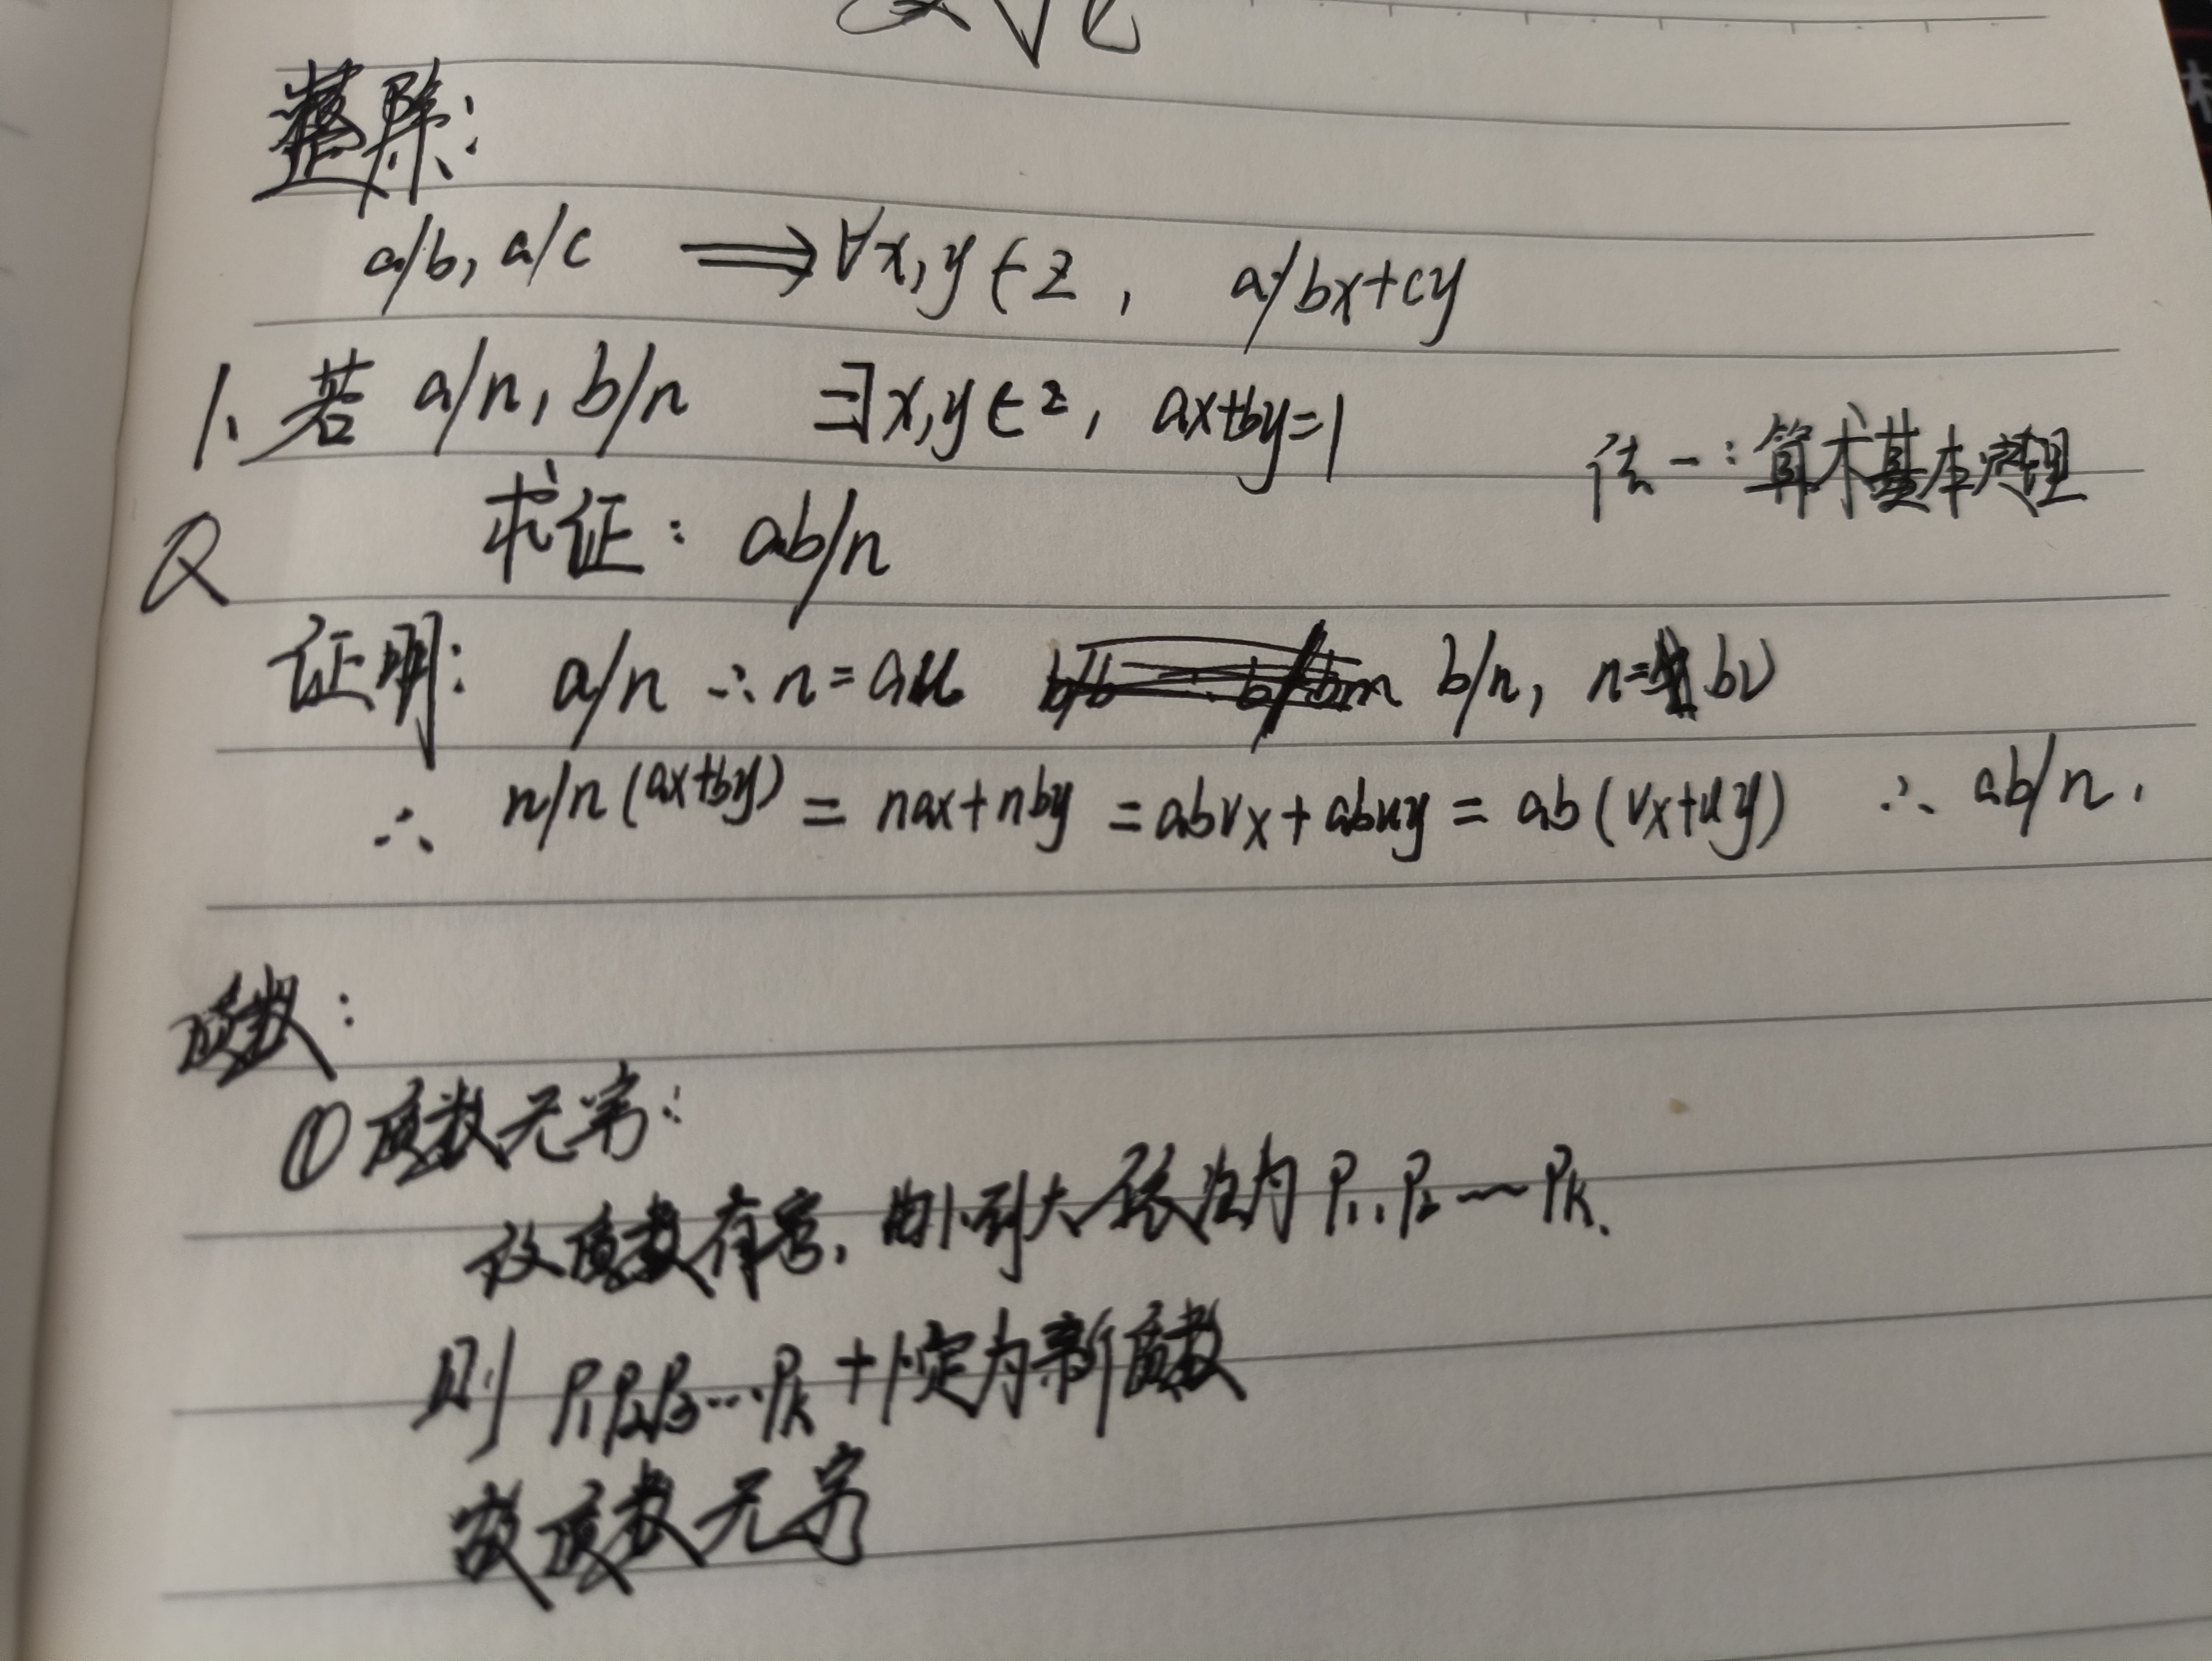 整除:
a/b, a/c ⟹ ∀x,y∈z, a/bx+cy
1、若 a/n, b/n ∃x,y∈z, ax+by=1
法一:算术基本定理
Q 求证: ab/n
证明: a/n ∴ n=au b/n, n=bv
∴ n/n(ax+by) = nax+nby = abvx+abuy = ab(vx+uy) ∴ ab/n.
质数:
①质数无穷:
设质数有穷, 由小到大依次为 P₁,P₂…Pk.
则 P₁P₂P₃…Pk+1定为新质数
故质数无穷